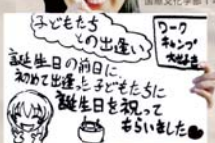 国際文化学部1年
子どもたち
との出逢い
ワーク
キャンプ
誕生日の前日に、
初めて出逢った子どもたちに
誕生日を祝って
もらいました